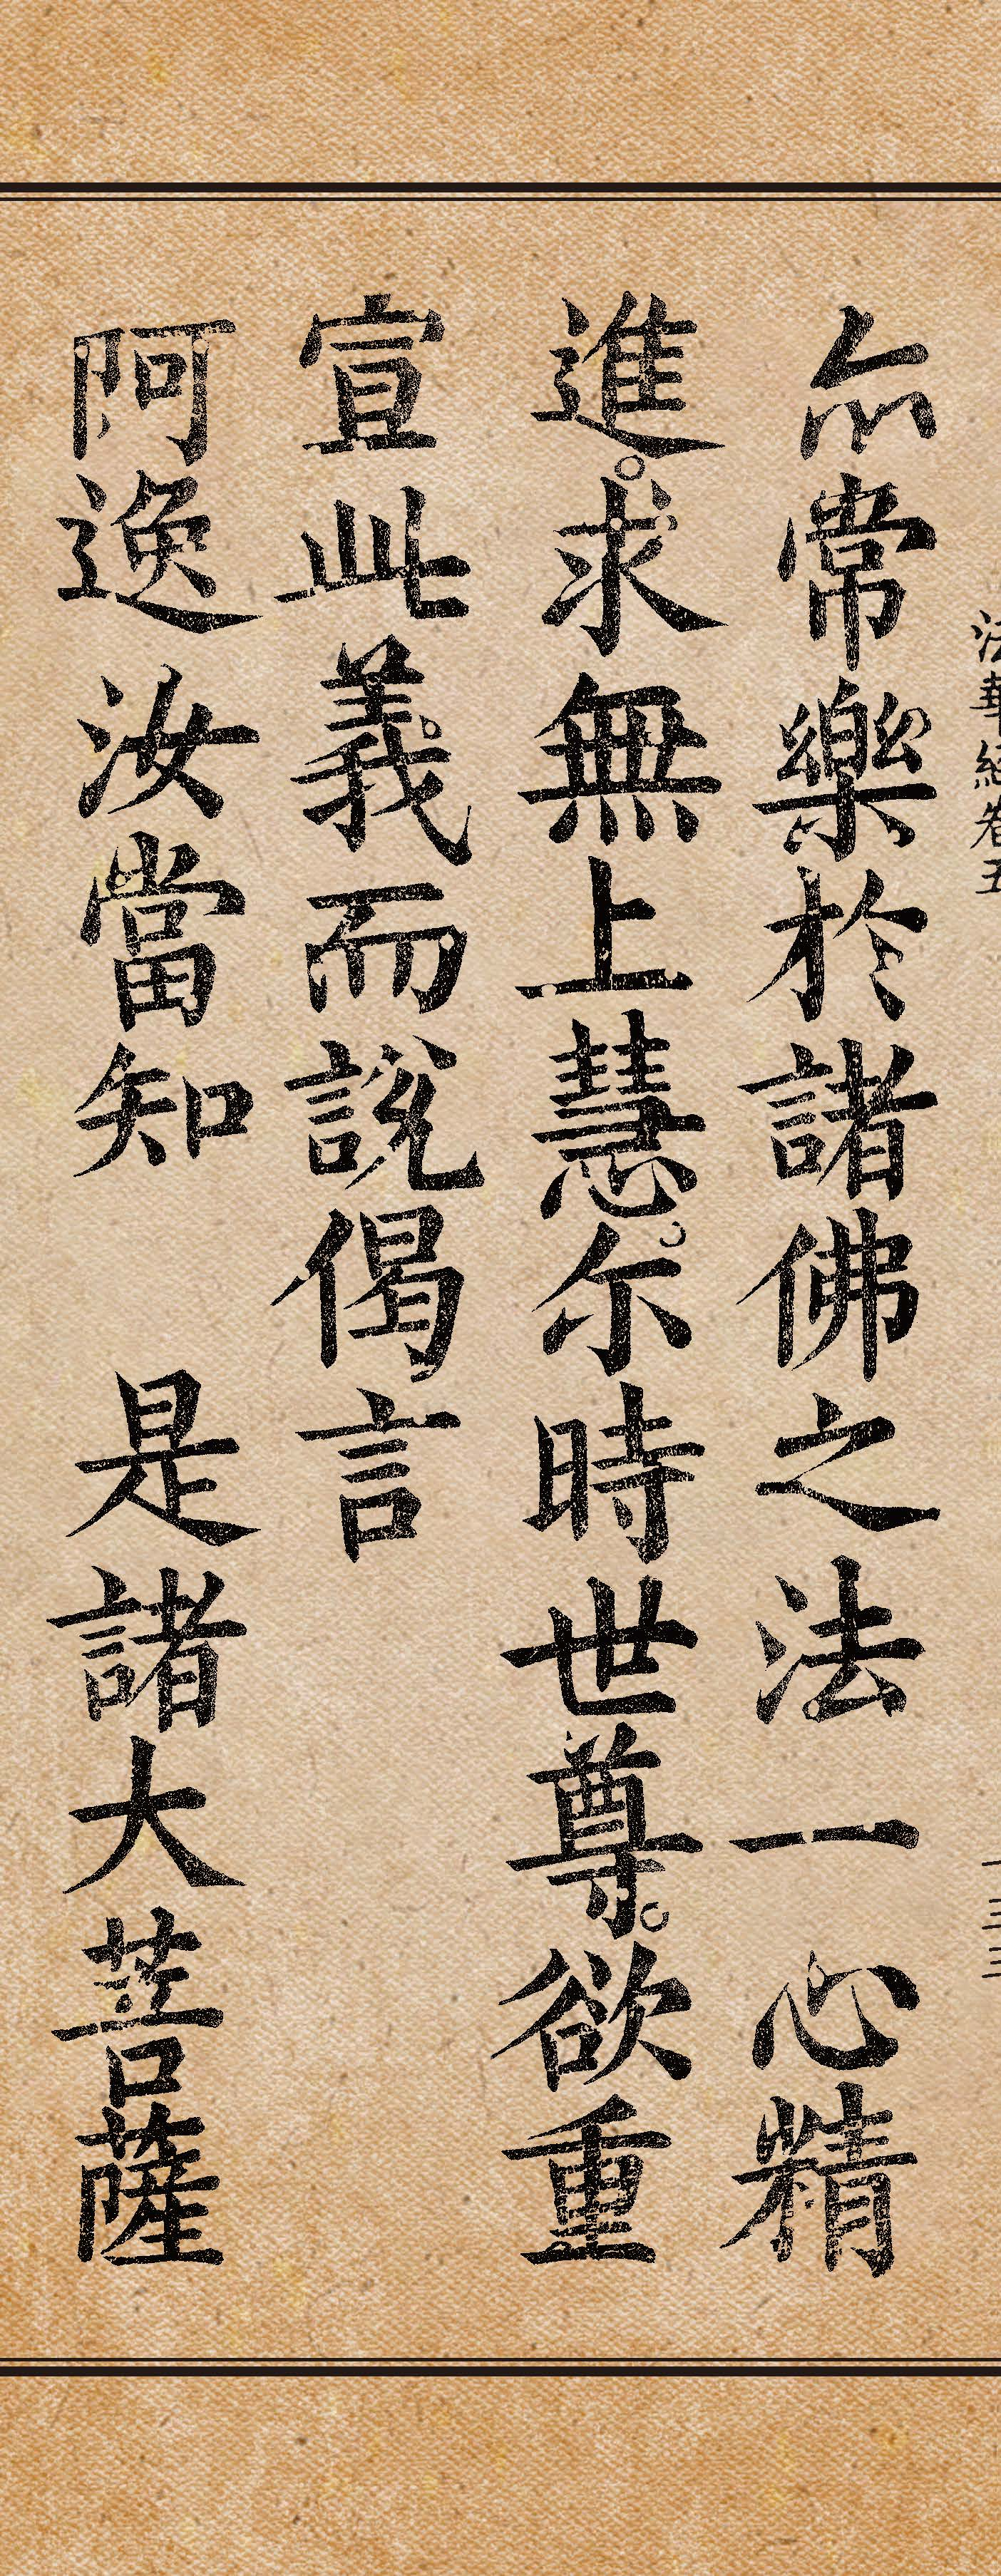 法華經卷五
亦常樂於諸佛之法一心精
進。求無上慧。尔時世尊。欲重
宣此義。而說偈言
阿逸汝當知　是諸大菩薩